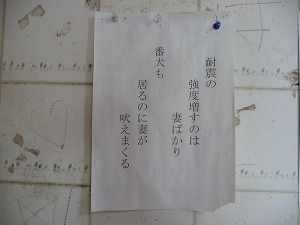 耐震の
強度増すのは
妻ばかり
番犬も
居るのに妻が
吠えまくる